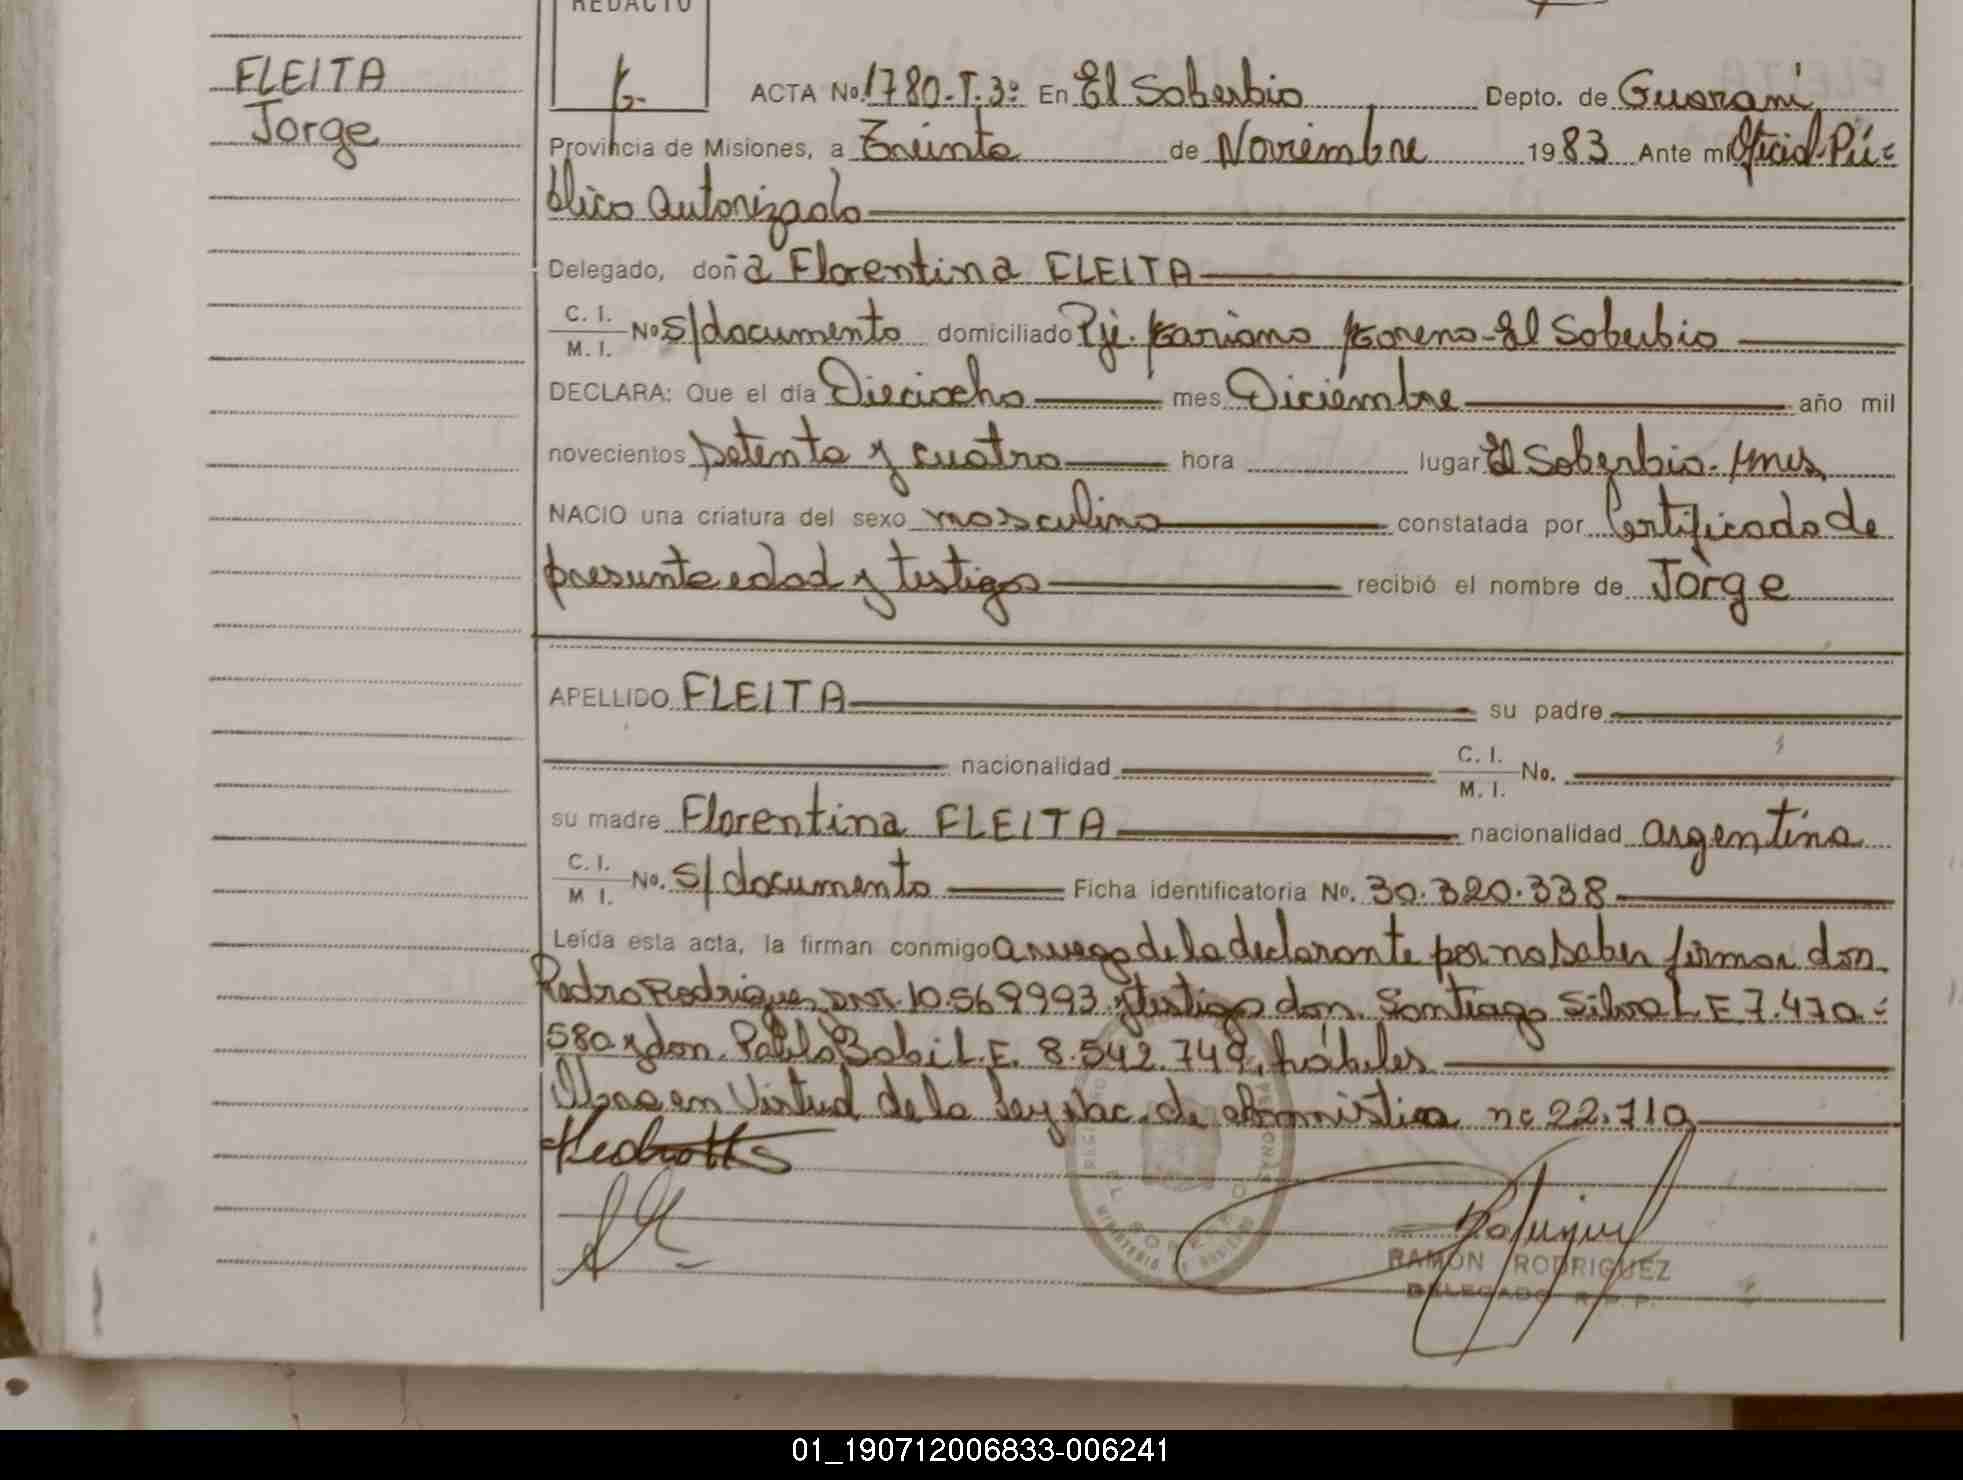 REDACTO
FLEITA
Jorge
ACTA No. 1780-T.3º En El Soberbio Depto. de Guarani
Provincia de Misiones, a Treinta de Noviembre 1983 Ante mi Oficial Pú=
blico Autorizado
Delegado, doña Florentina FLEITA
C. I.
M. I. No s/documento domiciliado Pje. Mariano Moreno-El Soberbio
DECLARA: Que el día Dieciocho mes Diciembre año mil
novecientos setenta y cuatro hora lugar El Soberbio-Mnes
NACIO una criatura del sexo masculino constatada por Certificado de
presunta edad y testigos recibió el nombre de Jorge
APELLIDO FLEITA su padre
nacionalidad C. I.
M. I. No.
su madre Florentina FLEITA nacionalidad argentina
C. I.
M I. No. s/documento Ficha identificatoria No. 30.320.338
Leída esta acta, la firman conmigo a ruego de la declarante por no saber firmar don
Pedro Rodriguez DNI. 10.569993 y testigo don Santiago Silva L E 7.470=
580 y don Pablo Bobi L.E. 8.542.749, hábiles
en Virtud de la Ley Nac. de amnistia nº 22.710
RAMON RODRIGUEZ
DELEGADO R. P. P.
01_190712006833-006241